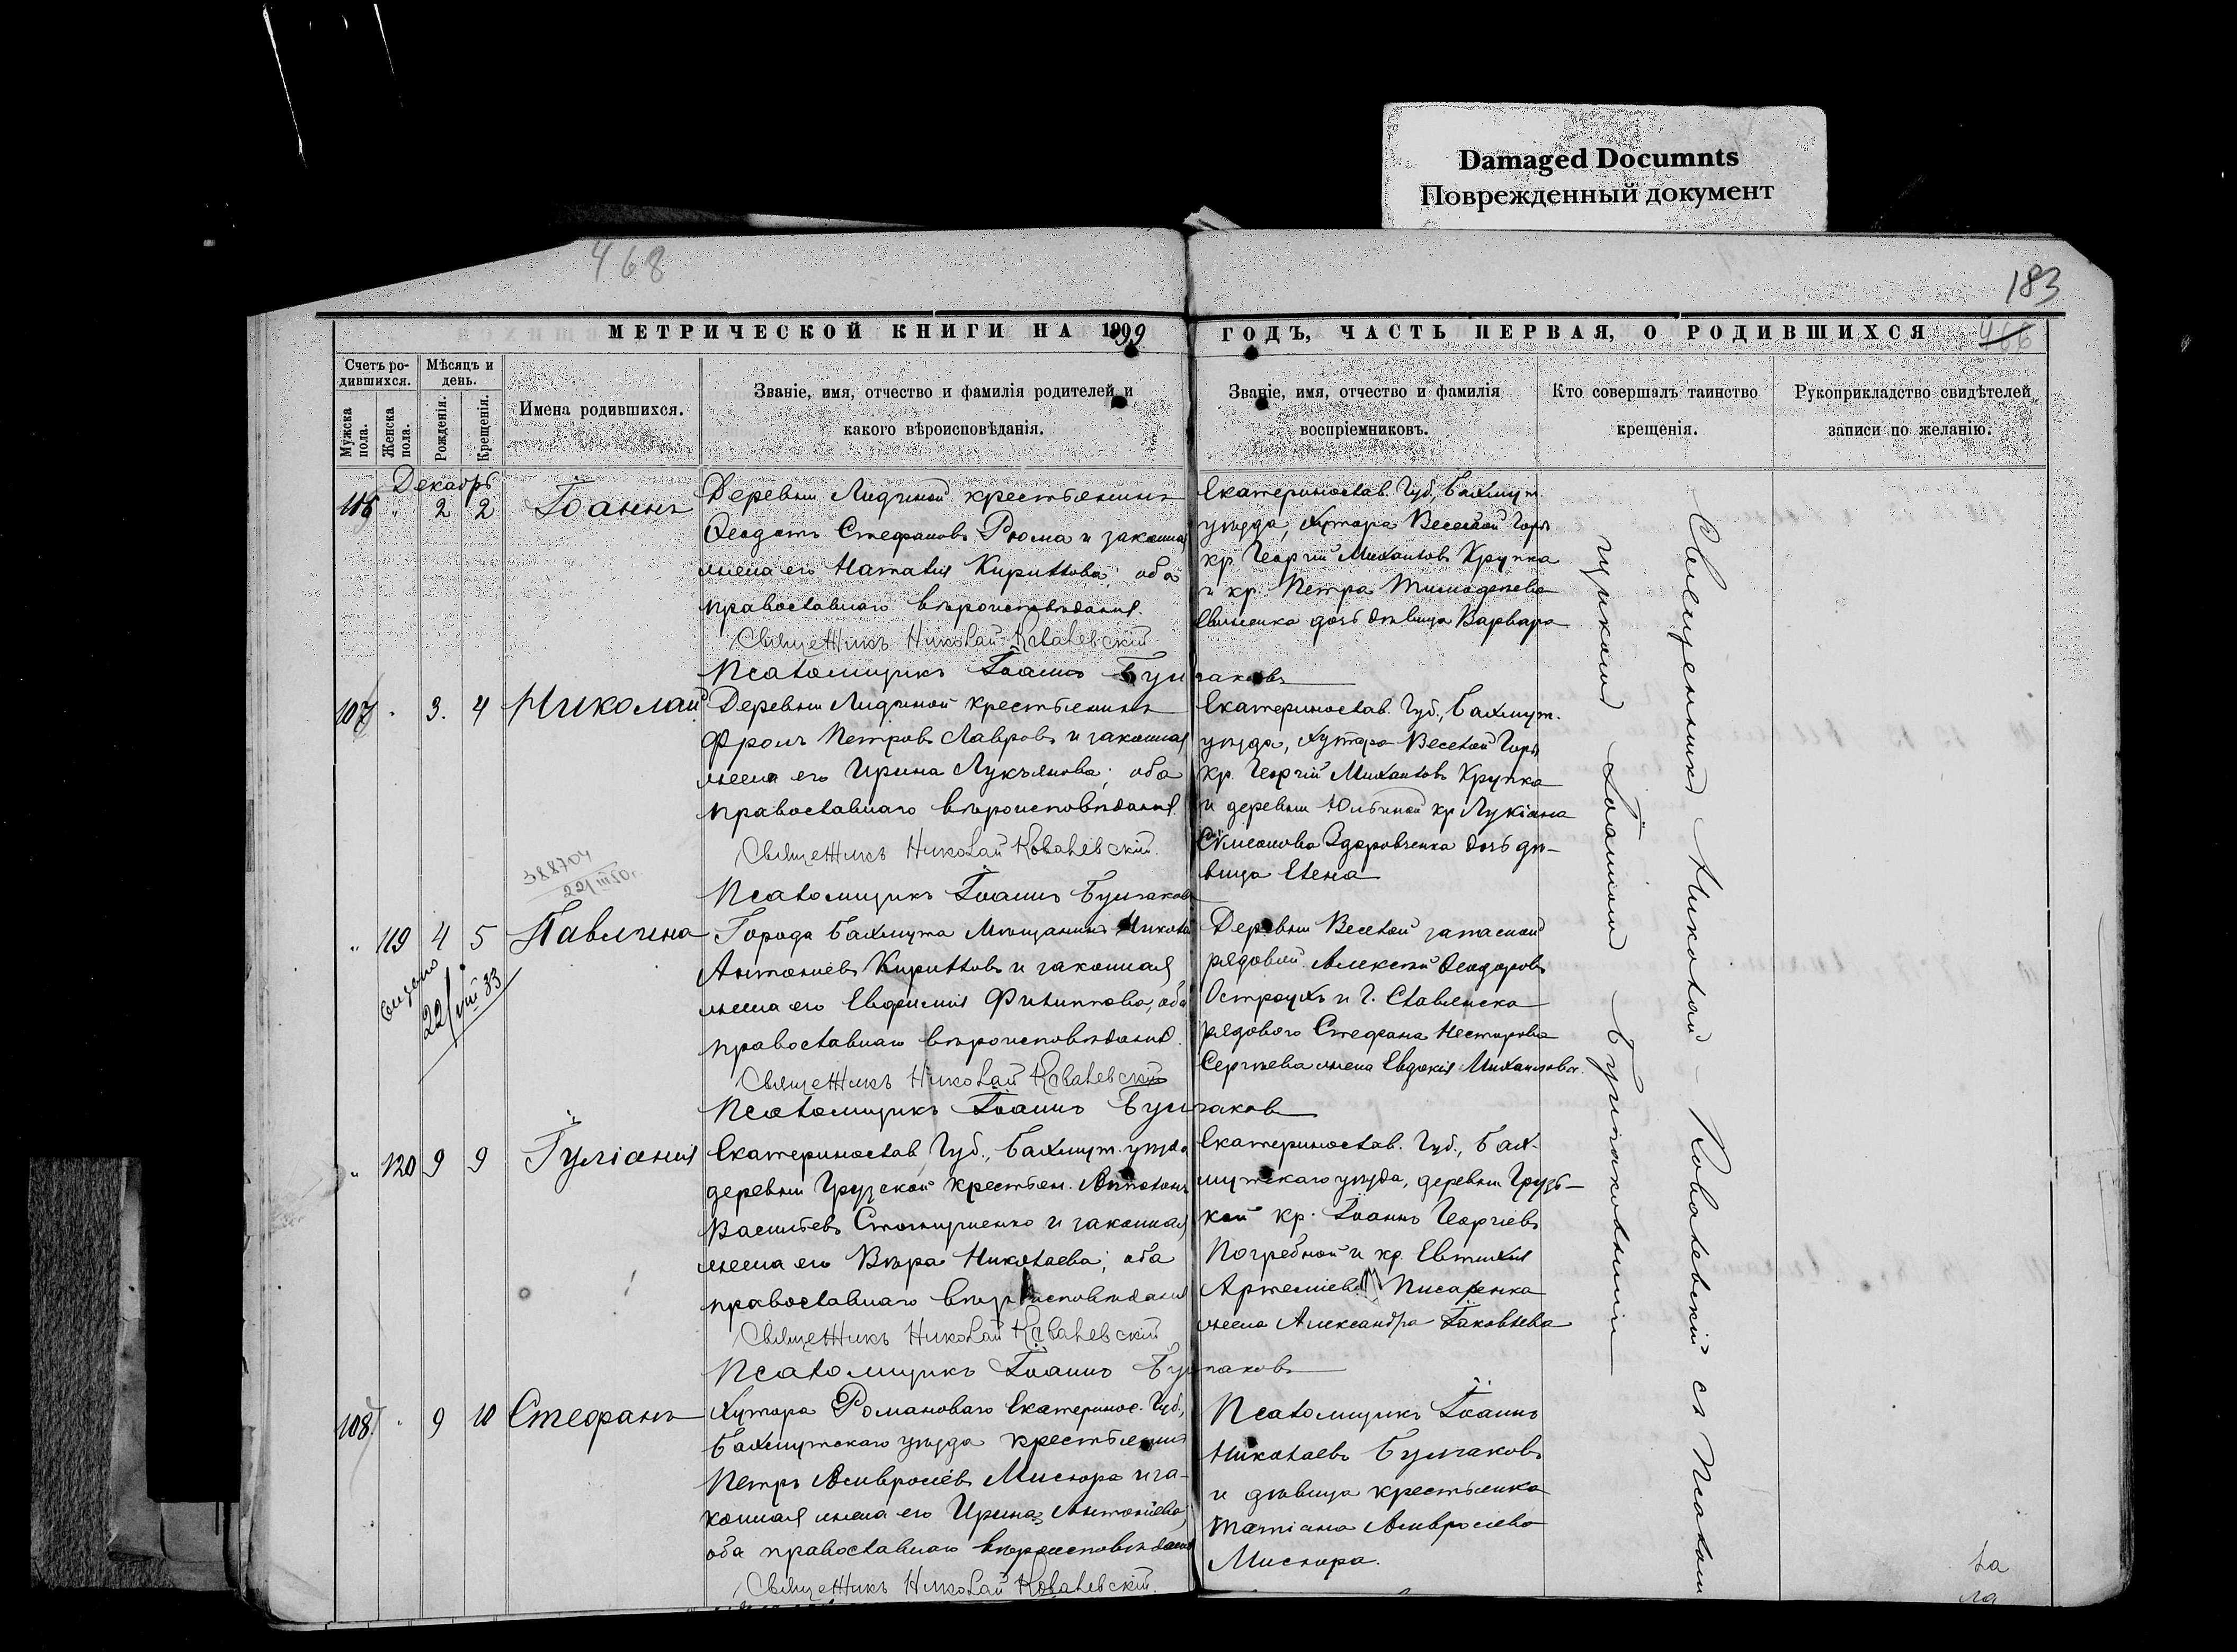 Damaged Documnts
Поврежденный документ
468
183
МЕТРИЧЕСКОЙ КНИГИ НА 1909
ГОДЪ, ЧАСТЬ ПЕРВАЯ, О РОДИВШИХСЯ
466
Счетъ ро-
дившихся.
Мужска
пола.
Женска
пола.
Мѣсяцъ и
день.
Рожденія.
Крещенія.
Имена родившихся.
Званіе, имя, отчество и фамилія родителей и
какого вѣроисповѣданія.
Званіе, имя, отчество и фамилія
воспріемниковъ.
Кто совершалъ таинство
крещенія.
Рукоприкладство свидѣтелей
записи по желанію.
Декабрь
106 " 2 2 Іоаннъ
Деревни Лидиной крестьянинъ
Ѳеодотъ Стефановъ Рюма и законная
жена его Наталія Кириллова; оба
православнаго вѣроисповѣданія.
Священникъ Николай Ковалевскій
Псаломщикъ Іоаннъ Булгаковъ
Екатеринослав. Губ., Бахмут.
уѣзда, хутора Веселой Горы
кр. Георгій Михаиловъ Крупка
и кр. Петра Тимоѳеева
дочь дѣвица Варвара
107 " 3. 4 Николай
Деревни Лидиной крестьянинъ
Фролъ Петровъ Лавровъ и законная
жена его Ирина Лукьянова; оба
православнаго вѣроисповѣданія.
Священникъ Николай Ковалевскій.
Псаломщикъ Іоаннъ Булгаковъ
Екатеринослав. Губ., Бахмут.
уѣзда, хутора Веселой Горы
кр. Георгій Михаиловъ Крупка
и деревни Юльиной кр. Лукіана
Здоровченка дочь дѣ-
вица Елена
388704
22/III 50 г.
" 119 4 5 Павлина
Выдано
22/VIII 33
Города Бахмута Мѣщанинъ Николай
Антоніевъ Кирилловъ и законная
жена его Евфимія Филиппова, оба
православнаго вѣроисповѣданія.
Священникъ Николай Ковалевскій
Псаломщикъ Іоаннъ Булгаковъ
Деревни Веселой запасной
рядовой Алексѣй Ѳеодоровъ
Остроухъ и г. Славянска
рядового Стефана Несторова
Сергѣева жена Евдокія Михаилова.
" 120 9 9 Іуліанія
Екатеринослав. Губ., Бахмут. уѣзда
деревни Грузской крестьян. Антонъ
Васильевъ и законная
жена его Вѣра Николаева; оба
православнаго вѣроисповѣданія
Священникъ Николай Ковалевскій
Псаломщикъ Іоаннъ Булгаковъ
Екатеринослав. Губ., Бах-
мутскаго уѣзда, деревни Грузс-
кой кр. Іоаннъ Георгіевъ
Погребной и кр. Евтихія
Артеміева Писаренка
жена Александра Іаковлева
108 " 9 10 Стефанъ
Хутора Романоваго Екатеринос. Губ.,
Бахмутскаго уѣзда крестьянинъ
Петръ Амвросіевъ Мисюра и за-
конная жена его Ирина Антоніева,
оба православнаго вѣроисповѣданія
Священникъ Николай Ковалевскій.
Псаломщикъ Іоаннъ
Николаевъ Булгаковъ
и дѣвица крестьянка
Татіана Амвросіева
Мисюра.
Священникъ Николай Ковалевскій съ Псалом
щикомъ Іоанномъ Булгаковымъ